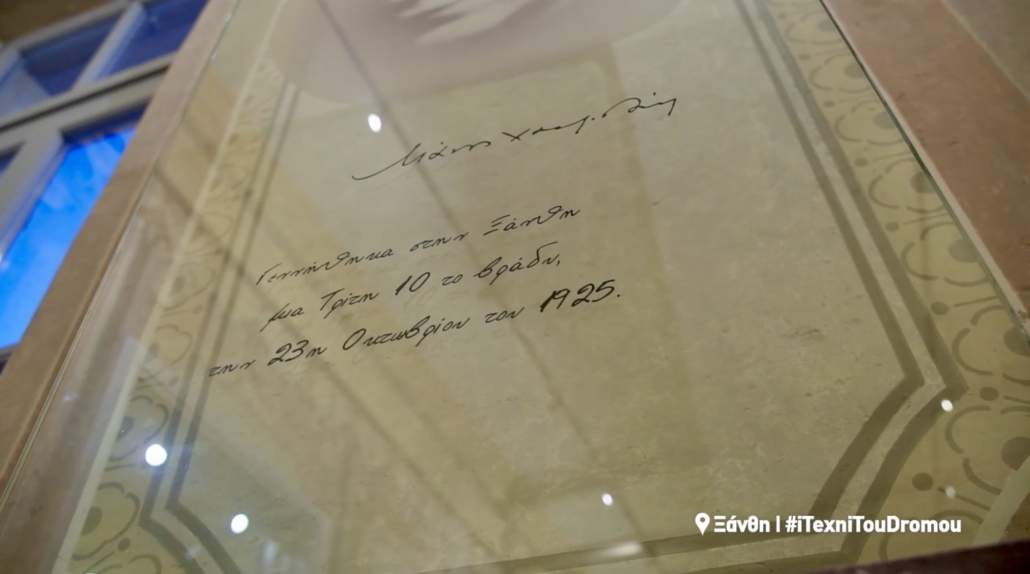 Μάνος Χατζιδάκις
Γεννήθηκα στην Ξάνθη
μια Τρίτη 10 το βράδυ,
την 23η Οκτωβρίου του 1925.
Ξάνθη | #iTexniTouDromou